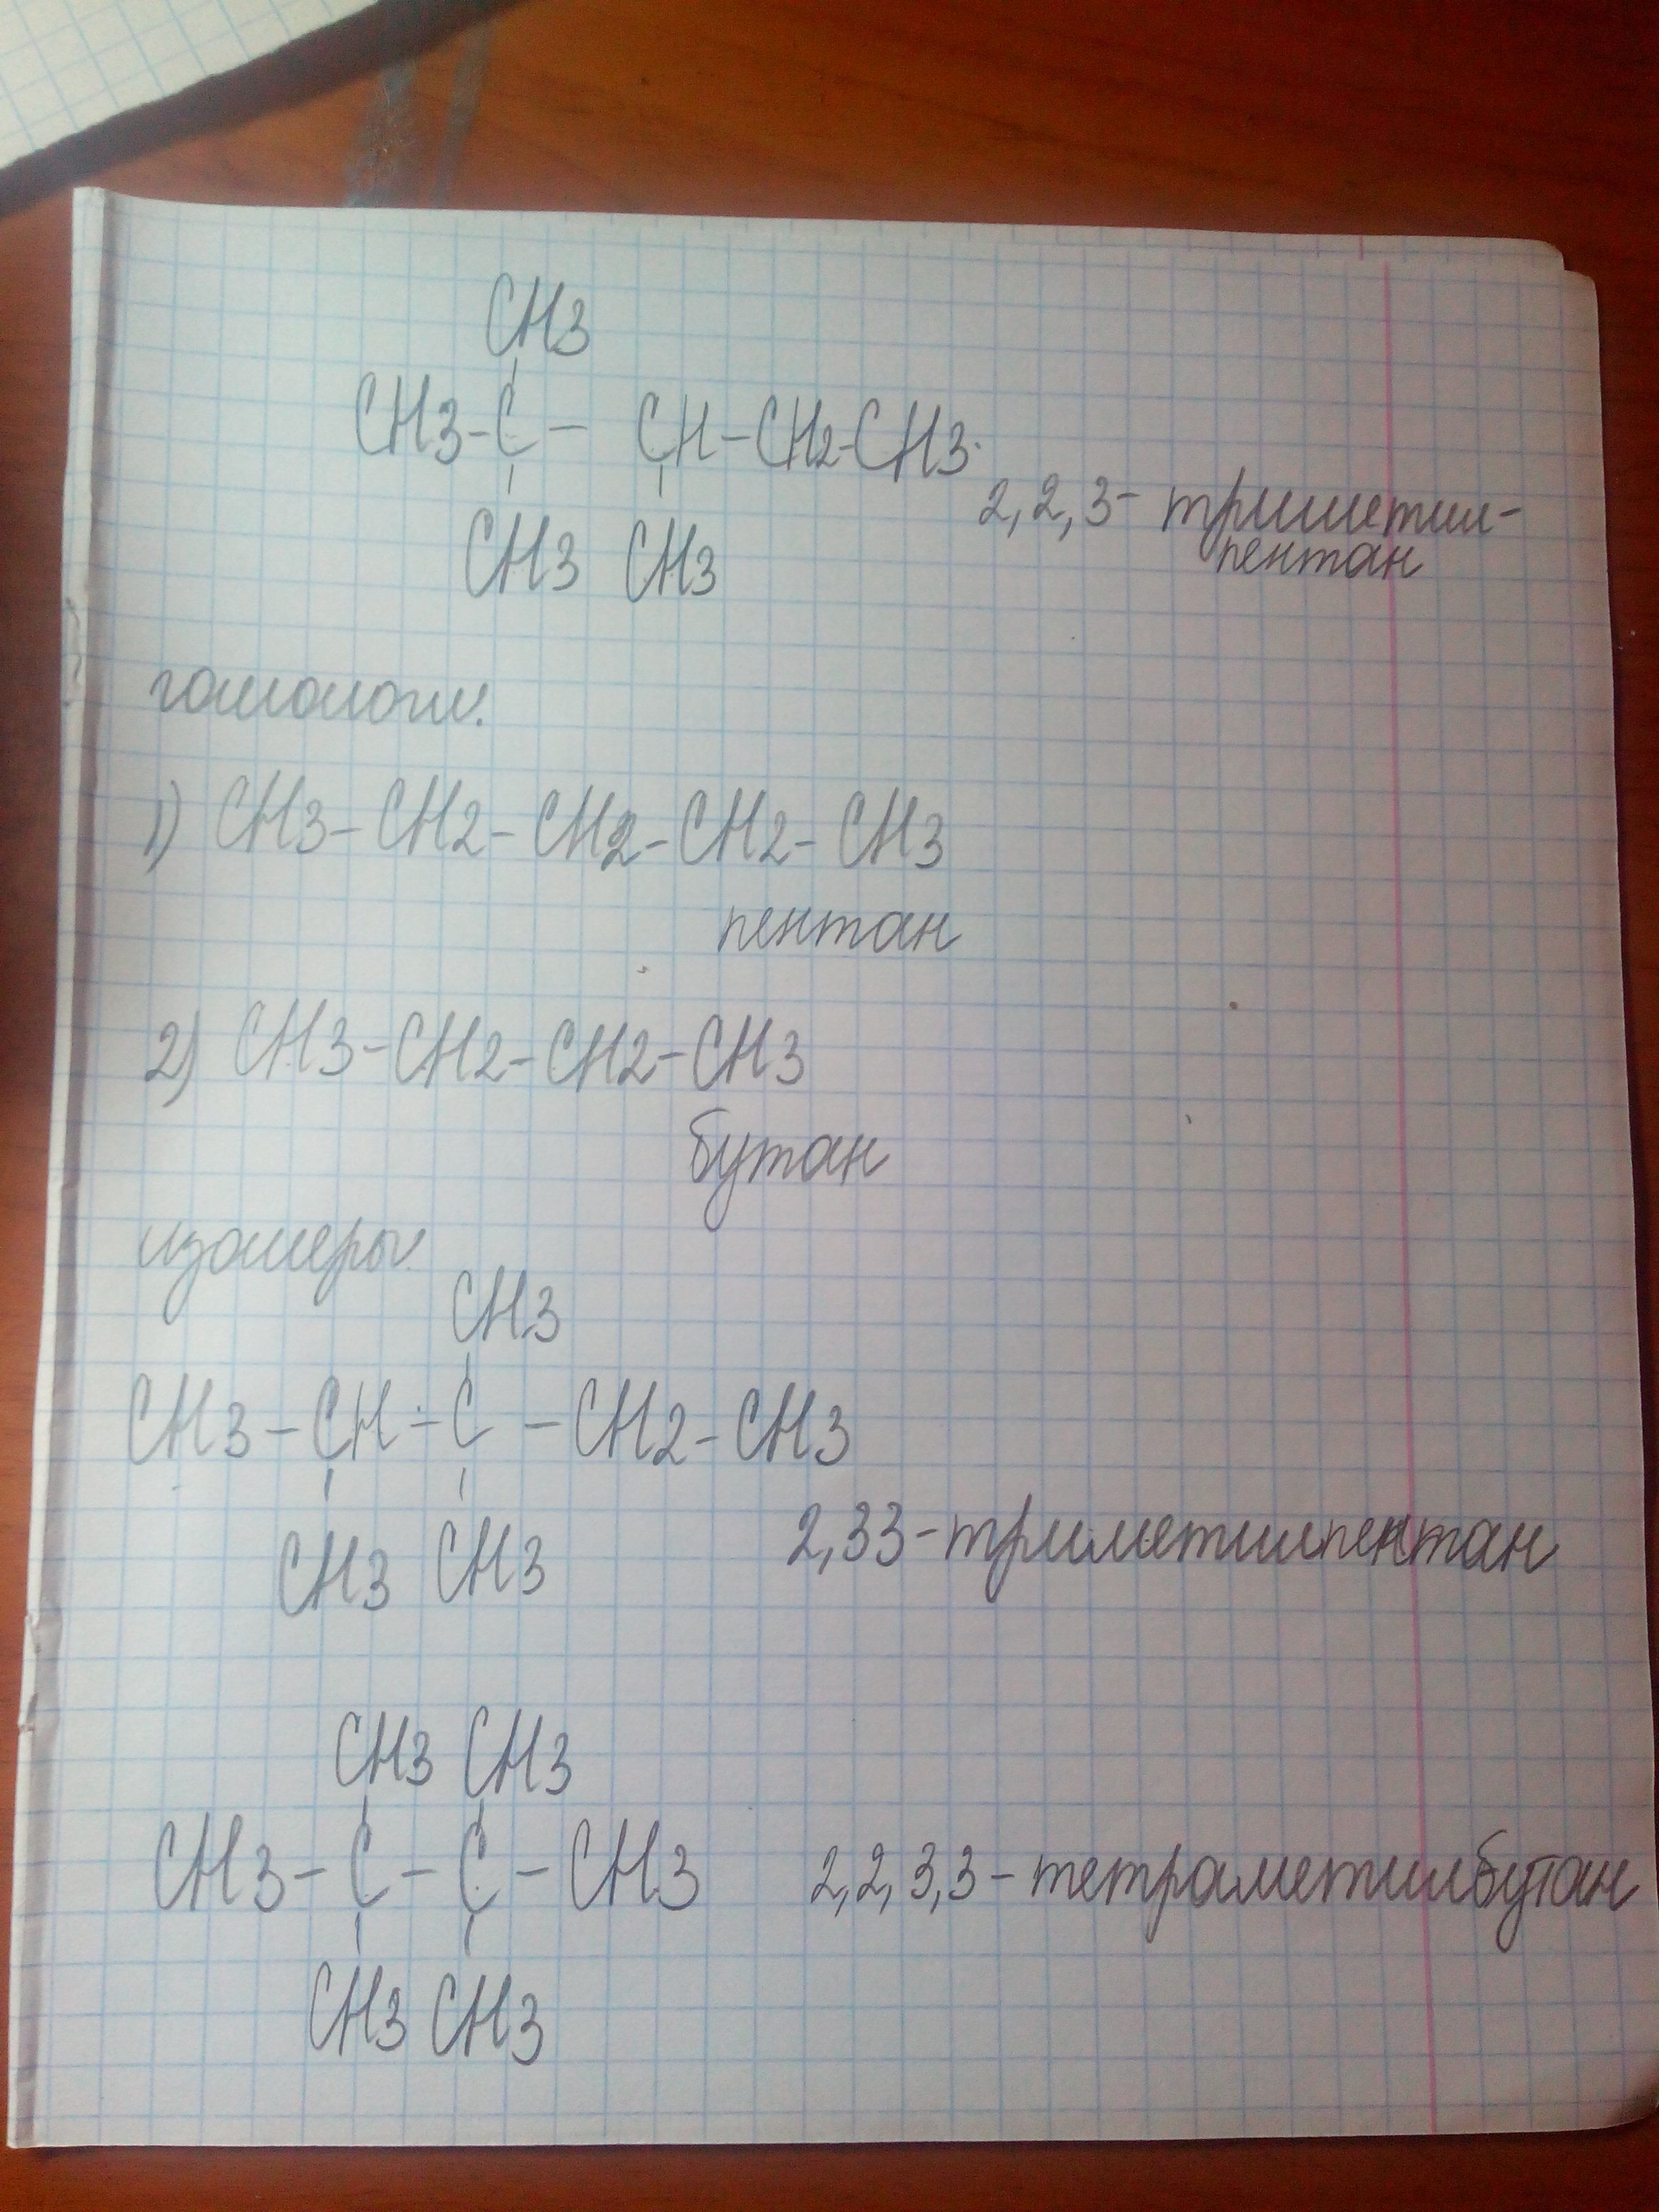 CH3
CH3-C- CH-CH2-CH3
CH3 CH3
2,2,3- триметил-
пентан
гомологи.
1) CH3-CH2-CH2-CH2-CH3
пентан
2) CH3-CH2-CH2-CH3
бутан
изомеры.
CH3
CH3-CH-C-CH2-CH3
CH3 CH3
2,33-триметилпентан
CH3 CH3
CH3-C-C-CH3 2,2,3,3-тетраметилбутан
CH3 CH3